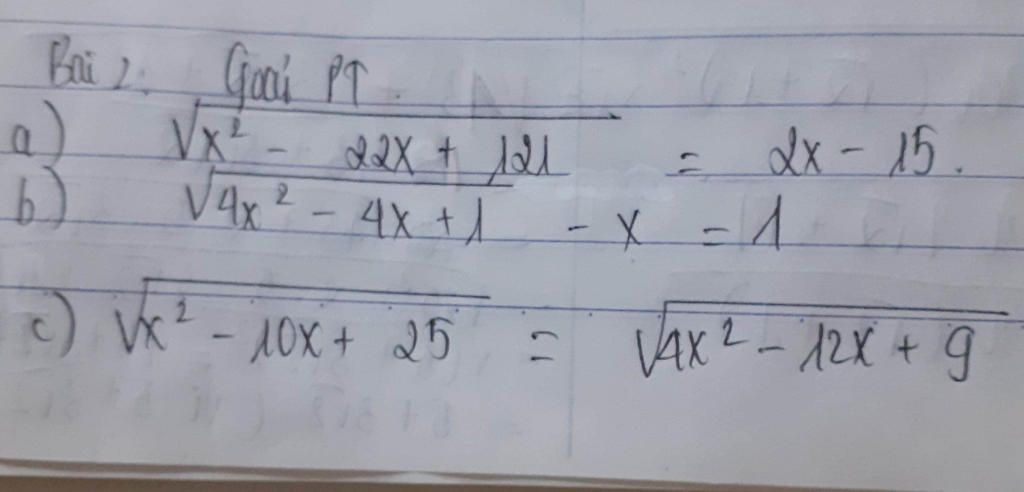 Bài 2. Giải PT.
a) √x² - 22x + 121 = 2x - 15.
b) √4x² - 4x + 1 - x = 1
c) √x² - 10x + 25 = √4x² - 12x + 9